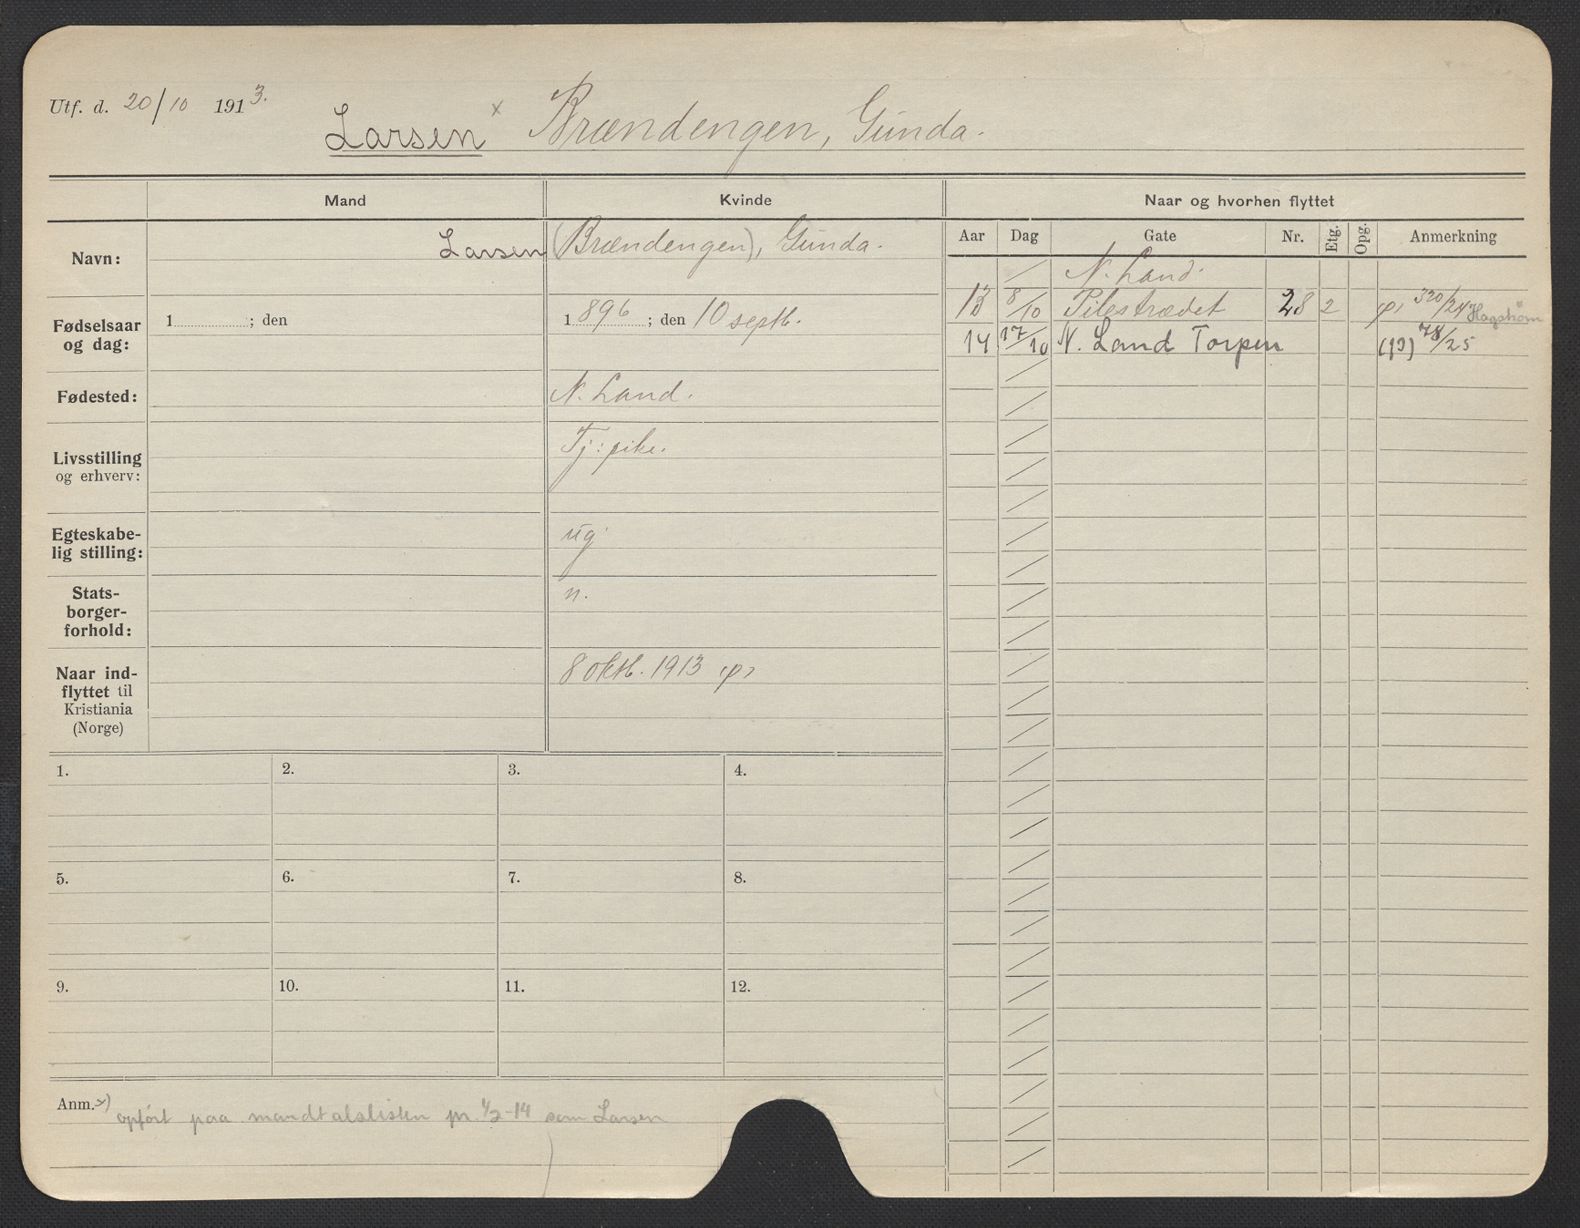 Utf. d. 20/10 1913.
Larsen x Brændengen, Gunda.
Mand Kvinde Naar og hvorhen flyttet
Aar Dag Gate Nr. Etg. Opg. Anmerkning
Navn: Larsen (Brændengen), Gunda.
N. Land.
13 8/10 Pilestrædet 28 2 320/24 Hagstrøm
14 17/10 N. Land Torpen (13) 78/25
Fødselsaar
og dag:
1 ; den
1896 ; den 10 septb.
Fødested: N. Land.
Livsstilling
og erhverv:
Tj: pike.
Egteskabe-
lig stilling:
ug
Stats-
borger-
forhold:
n.
Naar ind-
flyttet til
Kristiania
(Norge)
8 oktb. 1913
1. 2. 3. 4.
5. 6. 7. 8.
9. 10. 11. 12.
Anm. x) opført paa mandtalslisten pr. 1/2-14 som Larsen